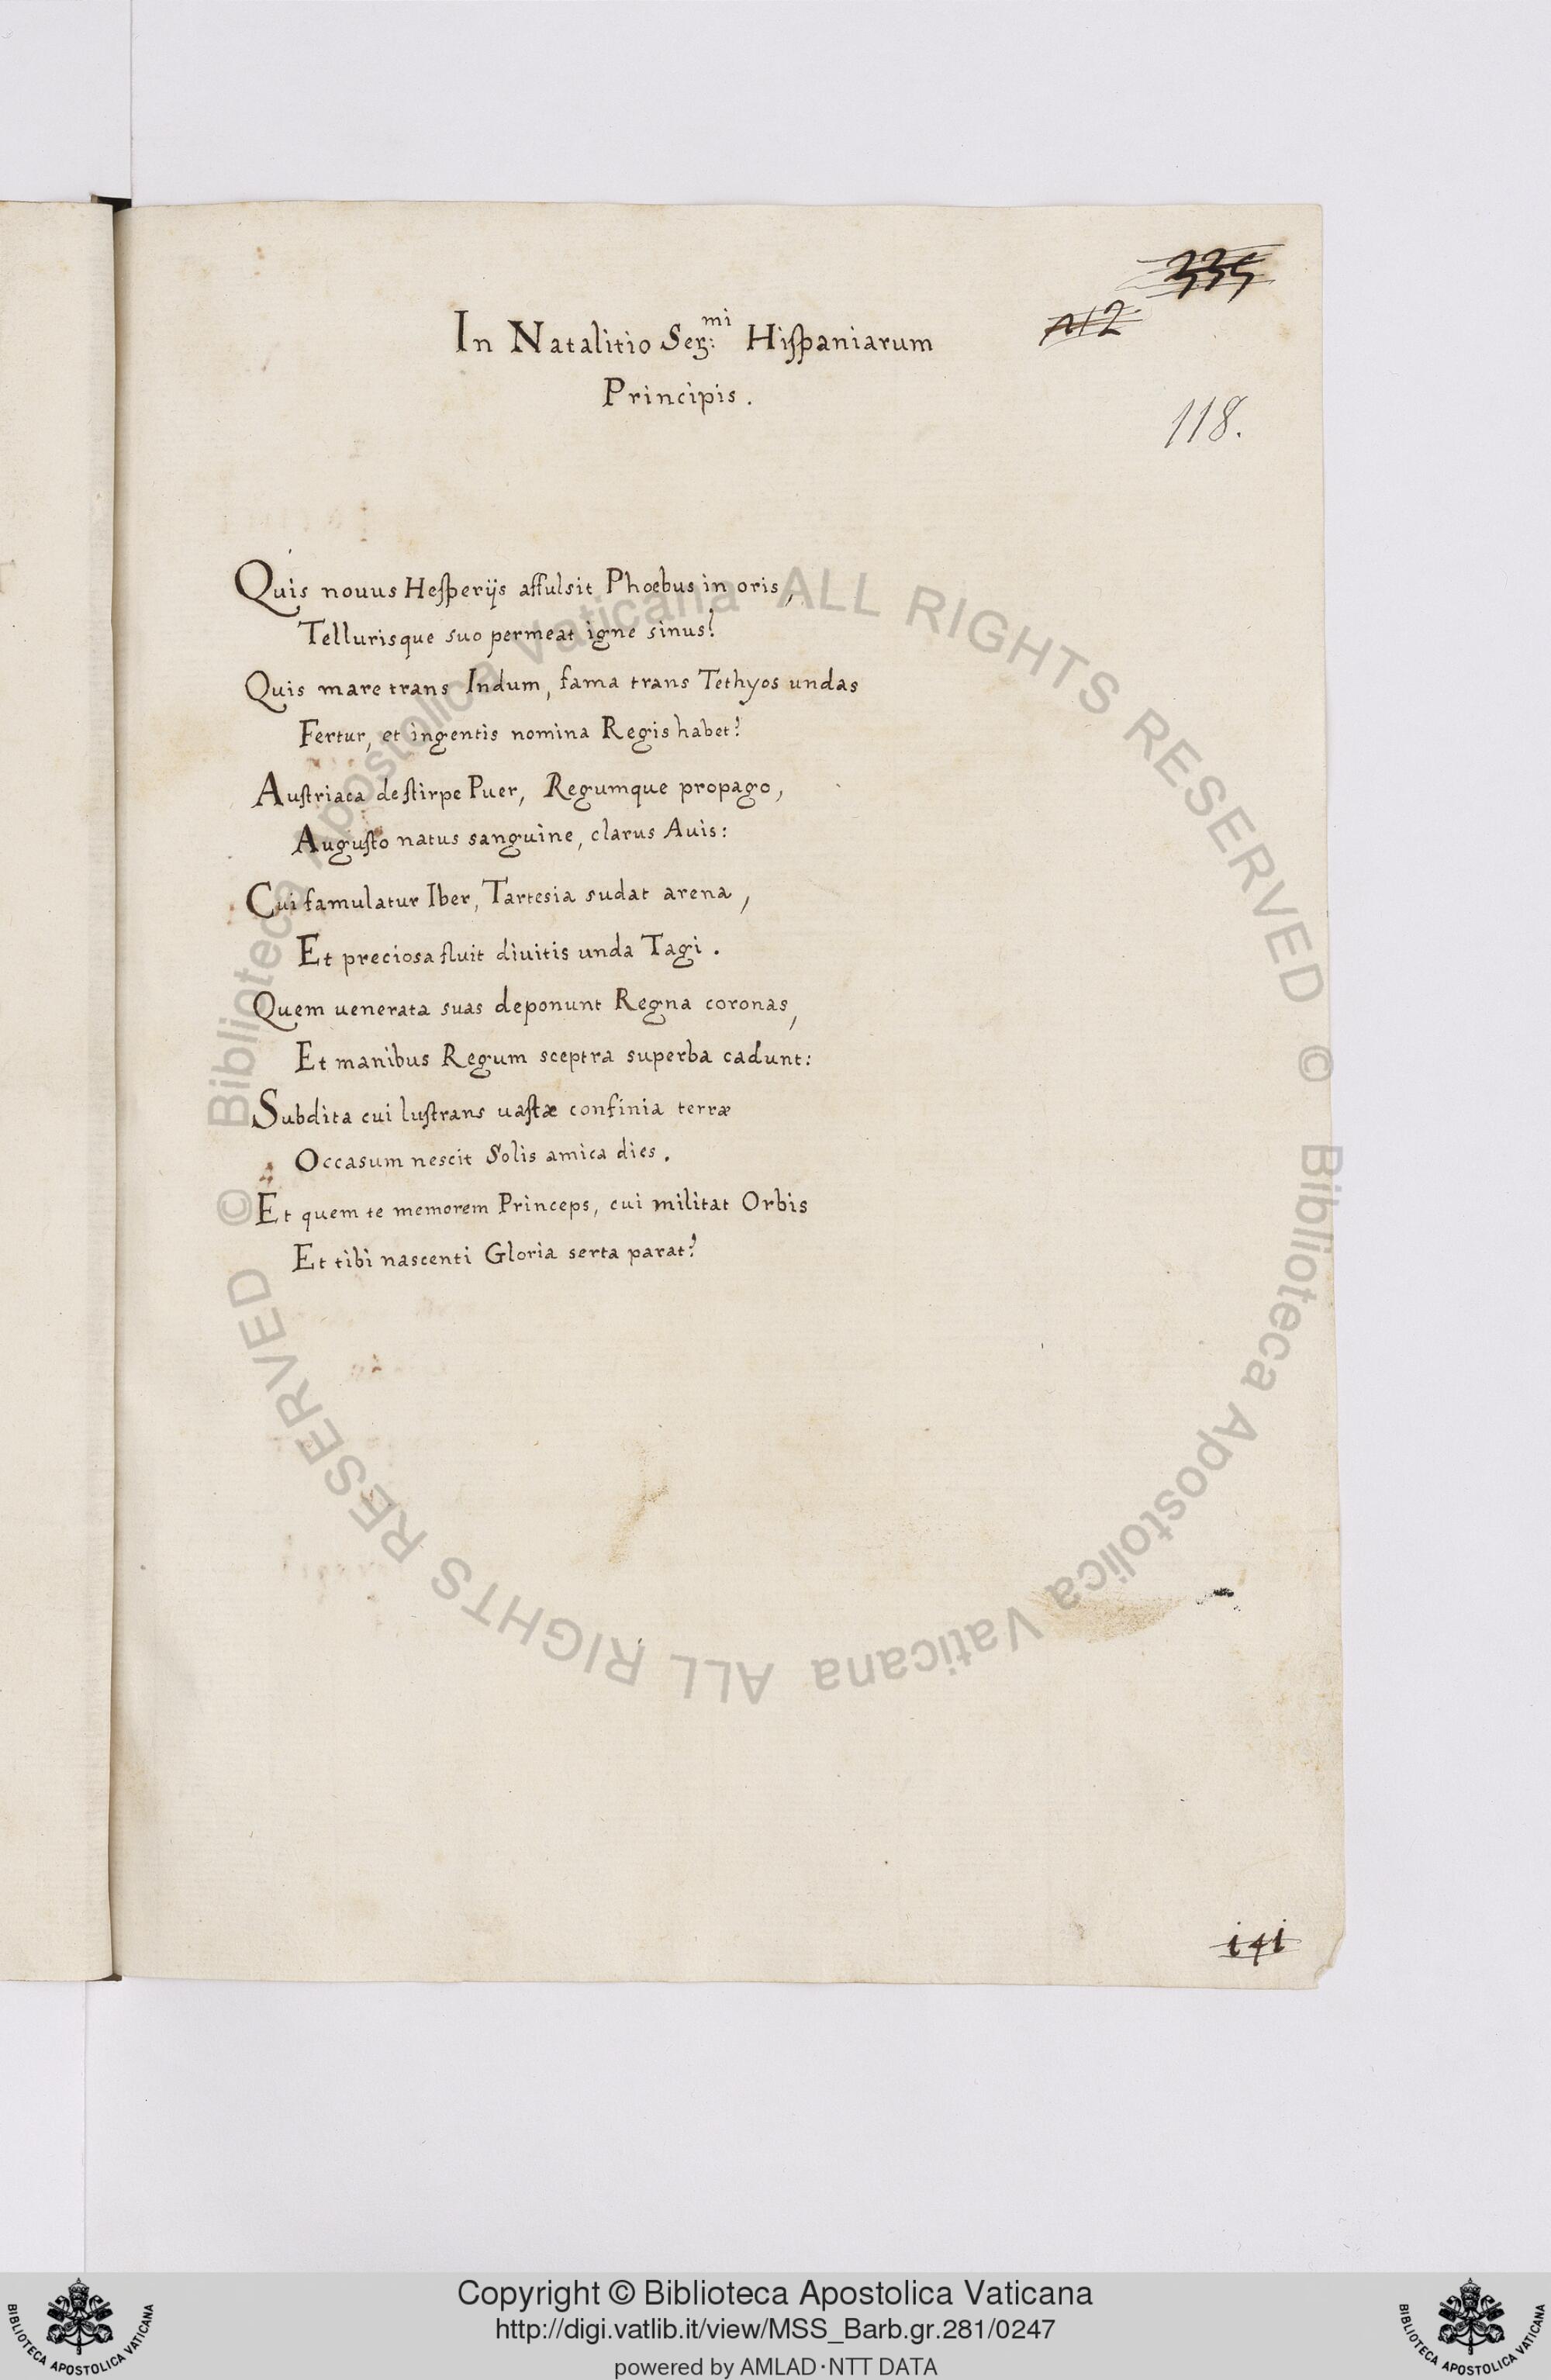 335
In Natalitio Ser:mi Hispaniarum
112
Principis.
118.
Quis nouus Hesperijs affulsit Phoebus in oris,
Tellurisque suo permeat igne sinus?
Quis mare trans Indum, fama trans Tethyos undas
Fertur, et ingentis nomina Regis habet?
Austriaca de stirpe Puer, Regumque propago,
Augusto natus sanguine, clarus Avis:
Cui famulatur Iber, Tartesia sudat arena,
Et preciosa fluit diuitis unda Tagi.
Quem uenerata suas deponunt Regna coronas,
Et manibus Regum sceptra superba cadunt:
Subdita cui lustrans uastæ confinia terræ
Occasum nescit Solis amica dies.
Et quem te memorem Princeps, cui militat Orbis
Et tibi nascenti Gloria serta parat?
141
© Biblioteca Apostolica Vaticana ALL RIGHTS RESERVED
© Biblioteca Apostolica Vaticana ALL RIGHTS RESERVED
Copyright © Biblioteca Apostolica Vaticana
http://digi.vatlib.it/view/MSS_Barb.gr.281/0247
powered by AMLAD·NTT DATA
BIBLIOTECA APOSTOLICA VATICANA
BIBLIOTECA APOSTOLICA VATICANA